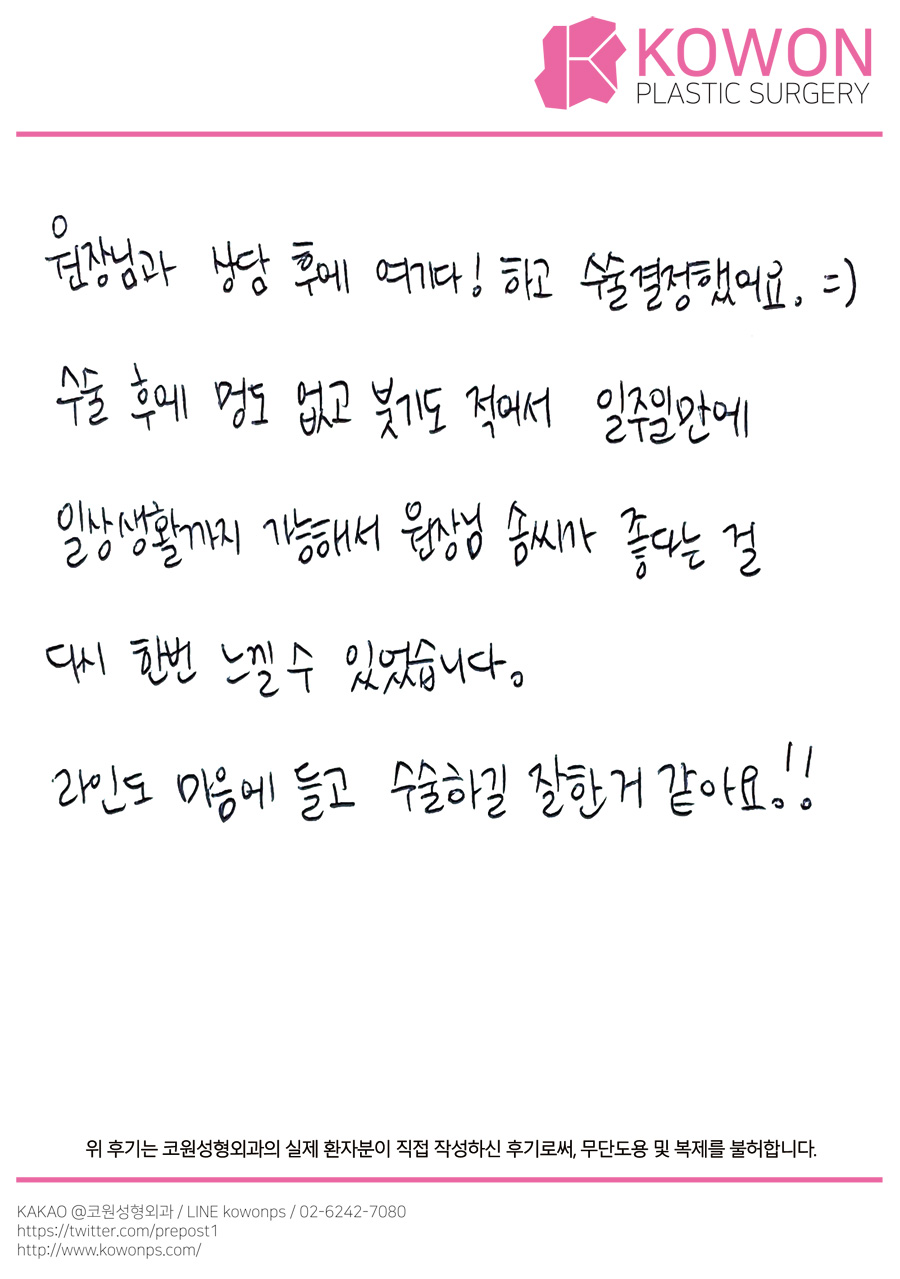 KOWON
PLASTIC SURGERY
원장님과 상담 후에 여기다! 하고 수술결정했어요. =)
수술 후에 멍도 없고 붓기도 적어서 일주일만에
일상생활까지 가능해서 원장님 솜씨가 좋다는 걸
다시 한번 느낄 수 있었습니다.
라인도 마음에 들고 수술하길 잘한거 같아요!!
위 후기는 코원성형외과의 실제 환자분이 직접 작성하신 후기로써, 무단도용 및 복제를 불허합니다.
KAKAO @코원성형외과 / LINE kowonps / 02-6242-7080
https://twitter.com/prepost1
http://www.kowonps.com/